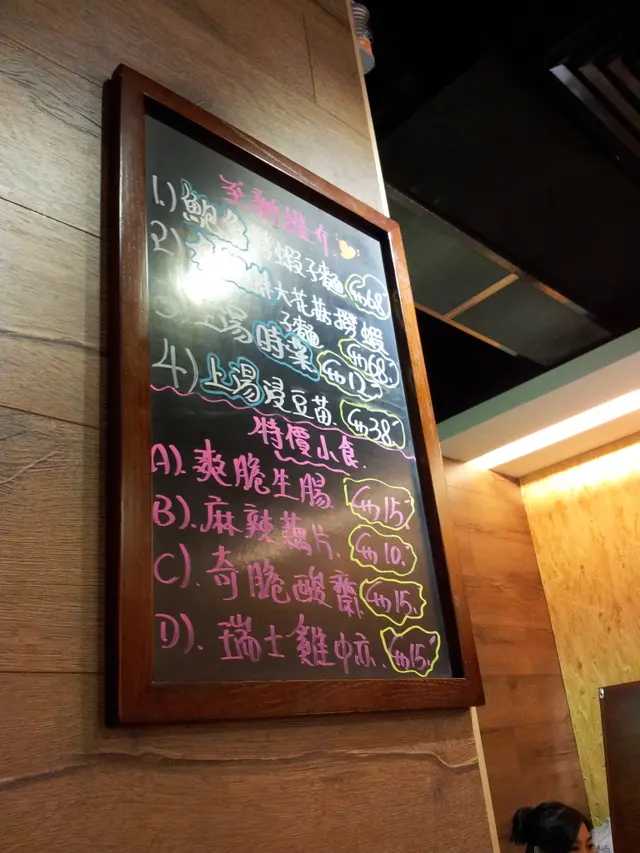 至新推介
1.) 鮑魚 蝦子麵 $68
2) 大花菇撈蝦
子麵 $68.
上湯時菜 $12
4) 上湯浸豆苗. $38.
特價小食.
A). 爽脆生腸 $15.
B). 麻辣藕片. $10.
C). 奇脆酸齋 $15.
D). 瑞士雞中亦. $15.